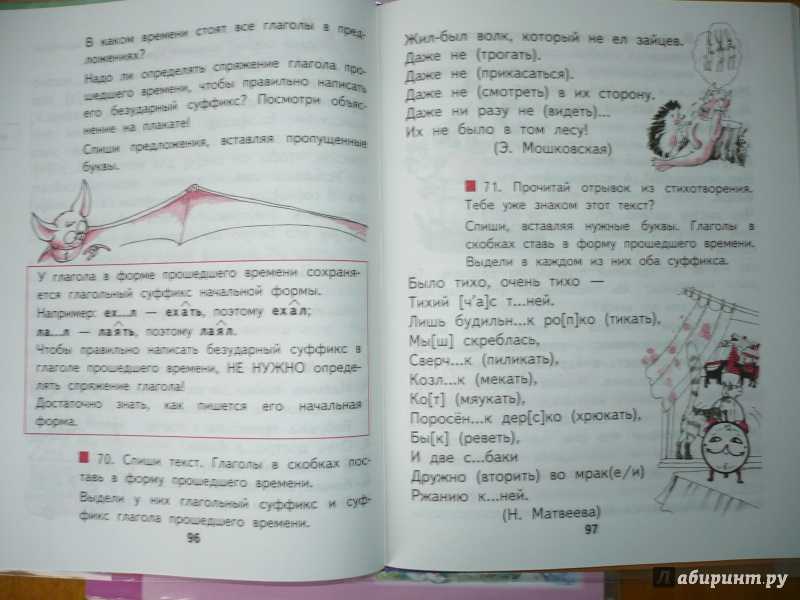 В каком времени стоят все глаголы в пред-
ложениях?
Надо ли определять спряжение глагола про-
шедшего времени, чтобы правильно написать
его безударный суффикс? Посмотри объяс-
нение на плакате!
Спиши предложения, вставляя пропущенные
буквы.
У глагола в форме прошедшего времени сохраня-
ется глагольный суффикс начальной формы.
Например: ех...л — ехать, поэтому ехал;
ла...л — лаять, поэтому лаял.
Чтобы правильно написать безударный суффикс в
глаголе прошедшего времени, НЕ НУЖНО опреде-
лять спряжение глагола!
Достаточно знать, как пишется его начальная
форма.
70. Спиши текст. Глаголы в скобках пос-
тавь в форму прошедшего времени.
Выдели у них глагольный суффикс и суф-
фикс глагола прошедшего времени.
96
Жил-был волк, который не ел зайцев.
Даже не (трогать).
Даже не (прикасаться).
Даже не (смотреть) в их сторону.
Даже ни разу не (видеть)...
Их не было в том лесу!
(Э. Мошковская)
71. Прочитай отрывок из стихотворения.
Тебе уже знаком этот текст?
Спиши, вставляя нужные буквы. Глаголы в
скобках ставь в форму прошедшего времени.
Выдели в каждом из них оба суффикса.
Было тихо, очень тихо —
Тихий [ч'а]с т...ней.
Лишь будильн...к ро[п]ко (тикать),
Мы[ш] скреблась,
Сверч...к (пиликать),
Козл...к (мекать),
Ко[т] (мяукать),
Поросён...к дер[с]ко (хрюкать),
Бы[к] (реветь),
И две с...баки
Дружно (вторить) во мрак(е/и)
Ржанию к...ней.
(Н. Матвеева)
97
Лабиринт.ру